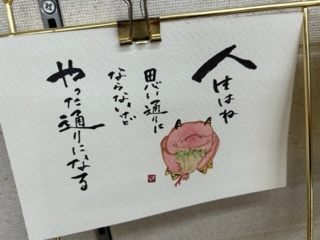 人生はね
思い通りに
ならないけど
やった通りになる